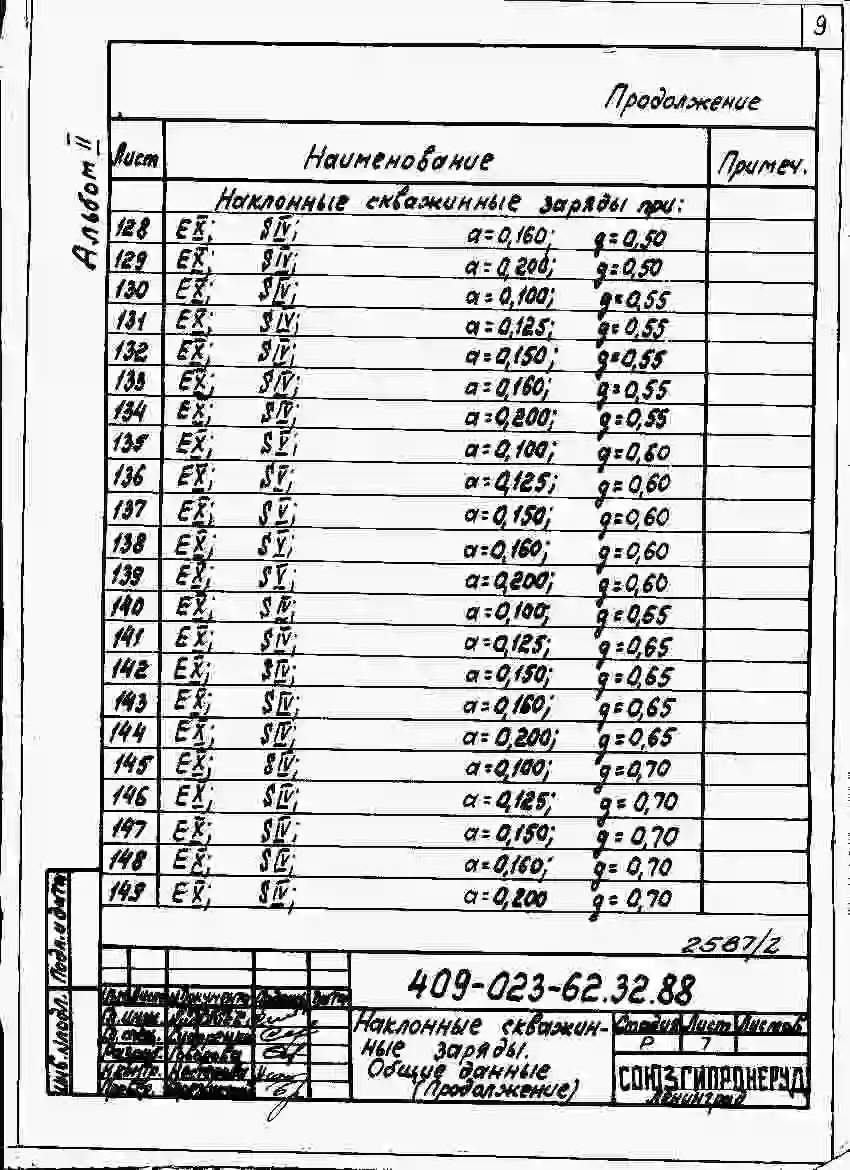 9
Альбом II
Продолжение
Лист Наименование Примеч.
Наклонные скважинные заряды при:
128 EX; SIV; a=0,160; g=0,50
129 EX; SIV; a=0,200; g=0,50
130 EX; SIV; a=0,100; g=0,55
131 EX; SIV; a=0,125; g=0,55
132 EX; SIV; a=0,150; g=0,55
133 EX; SIV; a=0,160; g=0,55
134 EX; SIV; a=0,200; g=0,55
135 EX; SV; a=0,100; g=0,60
136 EX; SV; a=0,125; g=0,60
137 EX; SV; a=0,150; g=0,60
138 EX; SV; a=0,160; g=0,60
139 EX; SV; a=0,200; g=0,60
140 EX; SIV; a=0,100; g=0,65
141 EX; SIV; a=0,125; g=0,65
142 EX; SIV; a=0,150; g=0,65
143 EX; SIV; a=0,160; g=0,65
144 EX; SIV; a=0,200; g=0,65
145 EX; SIV; a=0,100; g=0,70
146 EX; SIV; a=0,125; g=0,70
147 EX; SIV; a=0,150; g=0,70
148 EX; SIV; a=0,160; g=0,70
149 EX; SIV; a=0,200 g=0,70
2587/2
409-023-62.32.88
Наклонные скважин-
ные заряды.
Общие данные
(Продолжение)
Стадия Лист Листов
Р 7
СОЮЗГИПРОНЕРУД
Ленинград
Подп. и дата
Инв.№подл.